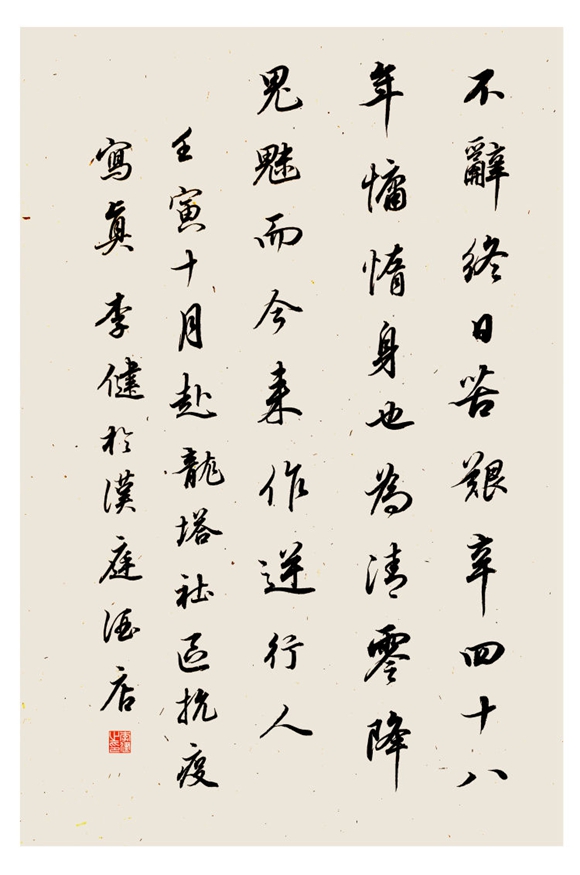 不辭終日苦艱辛四十八
年慵惰身也為清零降
鬼魅而今來作逆行人
壬寅十月赴龍塔社區抗疫
寫真 李健於漢庭酒店